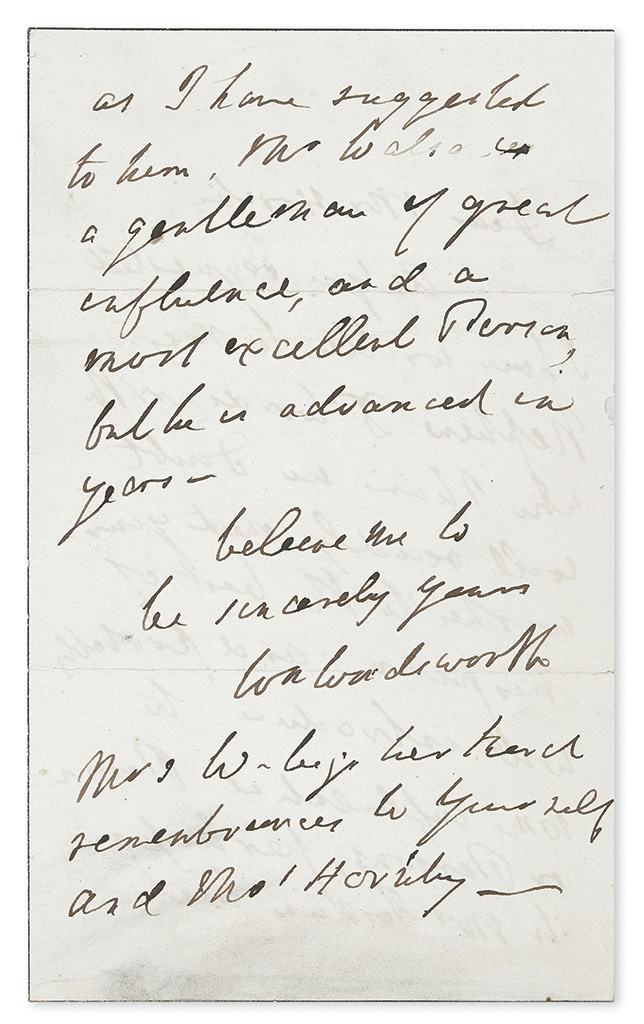 as I have suggested
to him. Mr W also is
a gentleman of great
influence, and a
most excellent Person,
but he is advanced in
years—
believe me to
be sincerely yours
Wm Wordsworth
Mrs W– begs her kind
remembrances to Yourself
and Mrs Hornby—